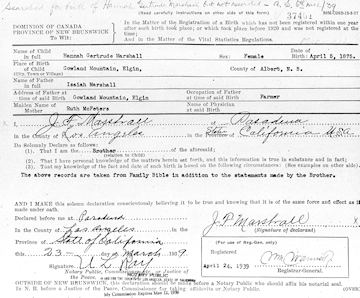 Searched for birth of Hannah Gertrude Marshall & not recorded
DOMINION OF CANADA
PROVINCE OF NEW BRUNSWICK
To Wit:
37402
(Read carefully instructions on other side of this form)
In the Matter of the Registration of a Birth which has not been registered within one year
after such birth took place; or which took place before 1920 and was not registered at the
time.
And in the Matter of the Vital Statistics Regulations.
Name of Child in full Hannah Gertrude Marshall Sex: Female Date of Birth April 5, 1875.
Place of Birth Gowland Mountain, Elgin, County of Albert, N. B.
(City, Town or Village)
Name of Father in full Isaiah Marshall
Address of Father at time of said Birth Gowland Mountain, Elgin Occupation of Father at time of said Birth Farmer
Maiden Name of Mother Ruth McPeters Name of Physician at said Birth
I, J. P. Marshall of Pasadena
County of Los Angeles State California USA
Do Solemnly Declare as follows:
(1) That I am the Brother of the aforesaid;
(relation to Child)
(2) That I have personal knowledge of the matters herein set forth, and this information is true in substance and in fact;
(3) That my knowledge of the fact and date of such birth is based on the following circumstances. (See examples on other side).
The above records are taken from Family Bible in addition to the statements made by the Brother.
And I make this solemn declaration conscientiously believing it to be true and knowing that it is of the same force and effect as if
made under oath.
Declared before me at Pasadena
in the County of Los Angeles
Province of State of California
this 23 day of March 1939
J. P. Marshall
(Signature of declarant)
(For use of Reg.-Gen. only)
Registered
April 24, 1939
Registrar-General.
Signature
Notary Public, Commissioner
OUTSIDE OF NEW BRUNSWICK, this declaration should be made before a Notary Public who should affix his notarial seal.
In N. B. before a Justice of the Peace, Commissioner for taking affidavits or Notary Public.
My Commission Expires